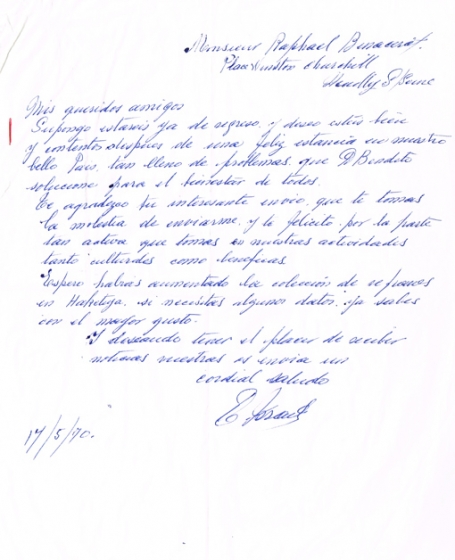 Monsieur Raphael Benacerraf.
Place Winston Churchill
Neuilly S/Seine
Mis queridos amigos
Supongo estareis ya de regreso, y deseo esteis bien
y contentos despues de una feliz estancia en nuestro
bello Pais, tan lleno de problemas, que D. Bendito
solucione para el bienestar de todos.
Te agradezco tu interesante envio, que te tomas
la molestia de enviarme, y te felicito por la parte
tan activa que tomas en nuestras actividades
tanto culturales como beneficas.
Espero habras aumentado la colección de refranes
en Haketiya, si necesitas algunos datos, ya sabes
con el mayor gusto.
Y deseando tener el placer de recibir
noticias vuestras os envia un
cordial saludo
17/5/70.